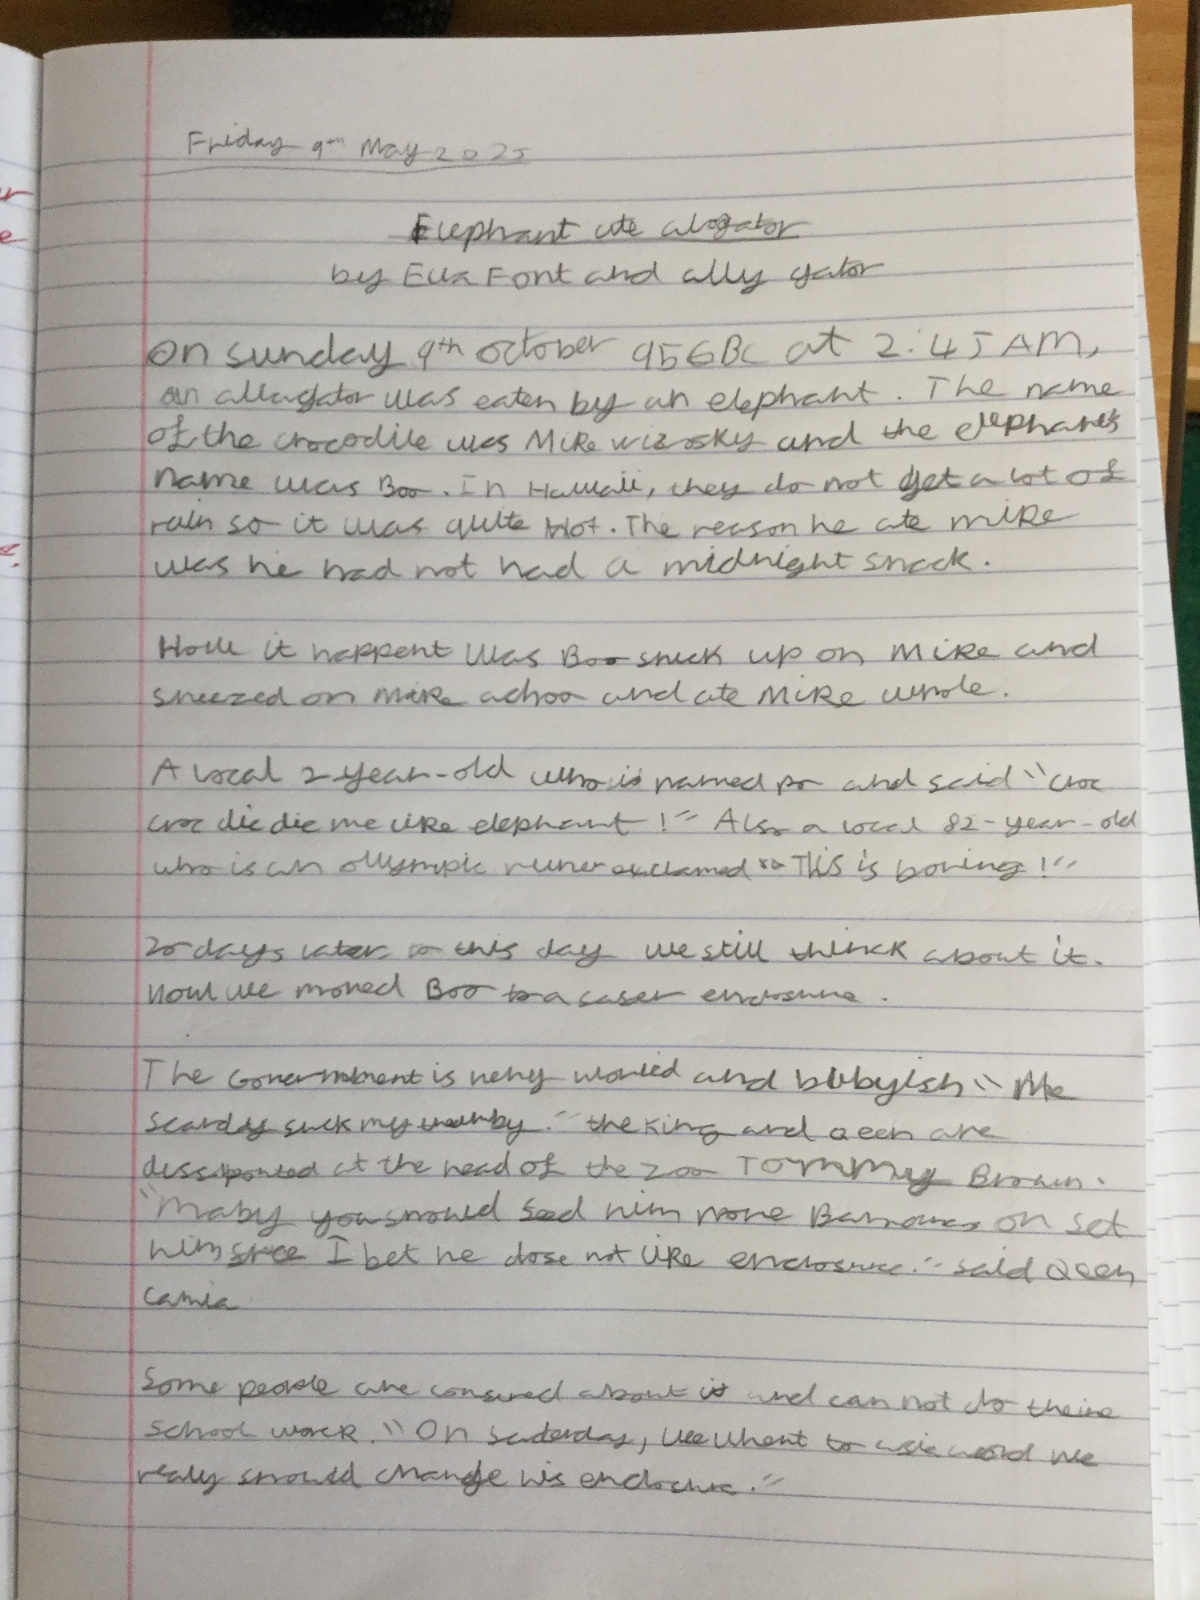 Friday 9th May 2025
Elephant ate alogator
by Ella Font and ally gator
On sunday 9th october 956BC at 2:45AM,
an allagator was eaten by an elephant. The name
of the crocodile was Mike wizosky and the elephant's
name was Boo. In Hawaii, they do not get a lot of
rain so it was quite hot. The reason he ate mike
was he had not had a midnight snack.
How it happent was Boo snuck up on Mike and
sneezed on Mike achoo and ate Mike whole.
A local 2-year-old who is named po and said "croc
croc die die me like elephant!" Also a local 82-year-old
who is an ollympic runer exclamed "This is boring!"
20 days later to this day we still thinck about it.
now we moved Boo to a safer enclosure.
The Government is very woried and bubyish "Me
scardy suck my thumby." the king and Qeen are
dissiponted at the head of the zoo Tommy Brown.
"Maby you should feed him more Bananas or set
him free I bet he dose not like enclosure." said Qeen
camila
Some people are consured about it and can not do theire
school worck. "On saderday, we whent to
realy should change his enclosure."